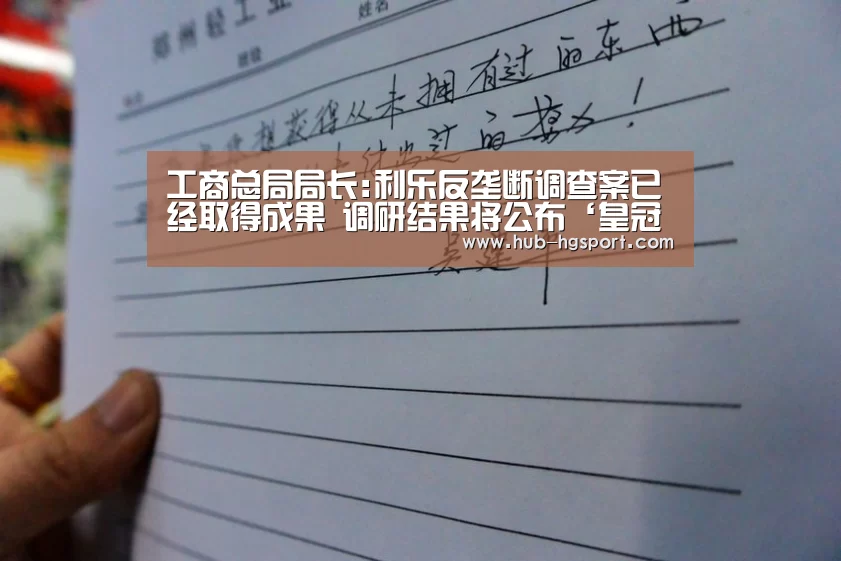 郑州轻工业
姓名
想获得从未拥有过的东西
未付出过的努力！
工商总局局长:利乐反垄断调查案已
经取得成果 调研结果将公布‘皇冠
www.hub-hgsport.com